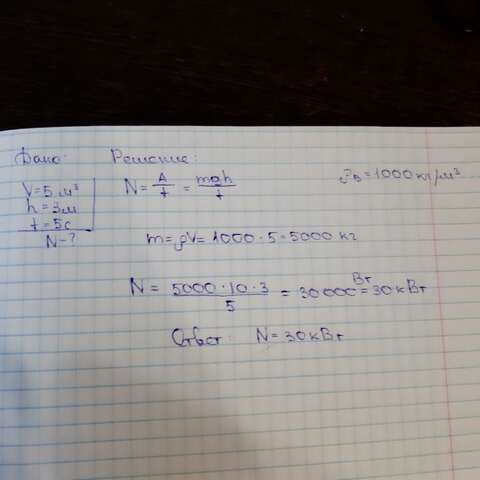 Дано: Решение:
V=5 м³
h=3м
t=5с
N-?
N= A/t = mgh/t
ρв=1000кг/м³
m=ρV=1000·5=5000 кг
N= 5000·10·3/5 = 30000 Вт=30кВт
Ответ: N=30кВт